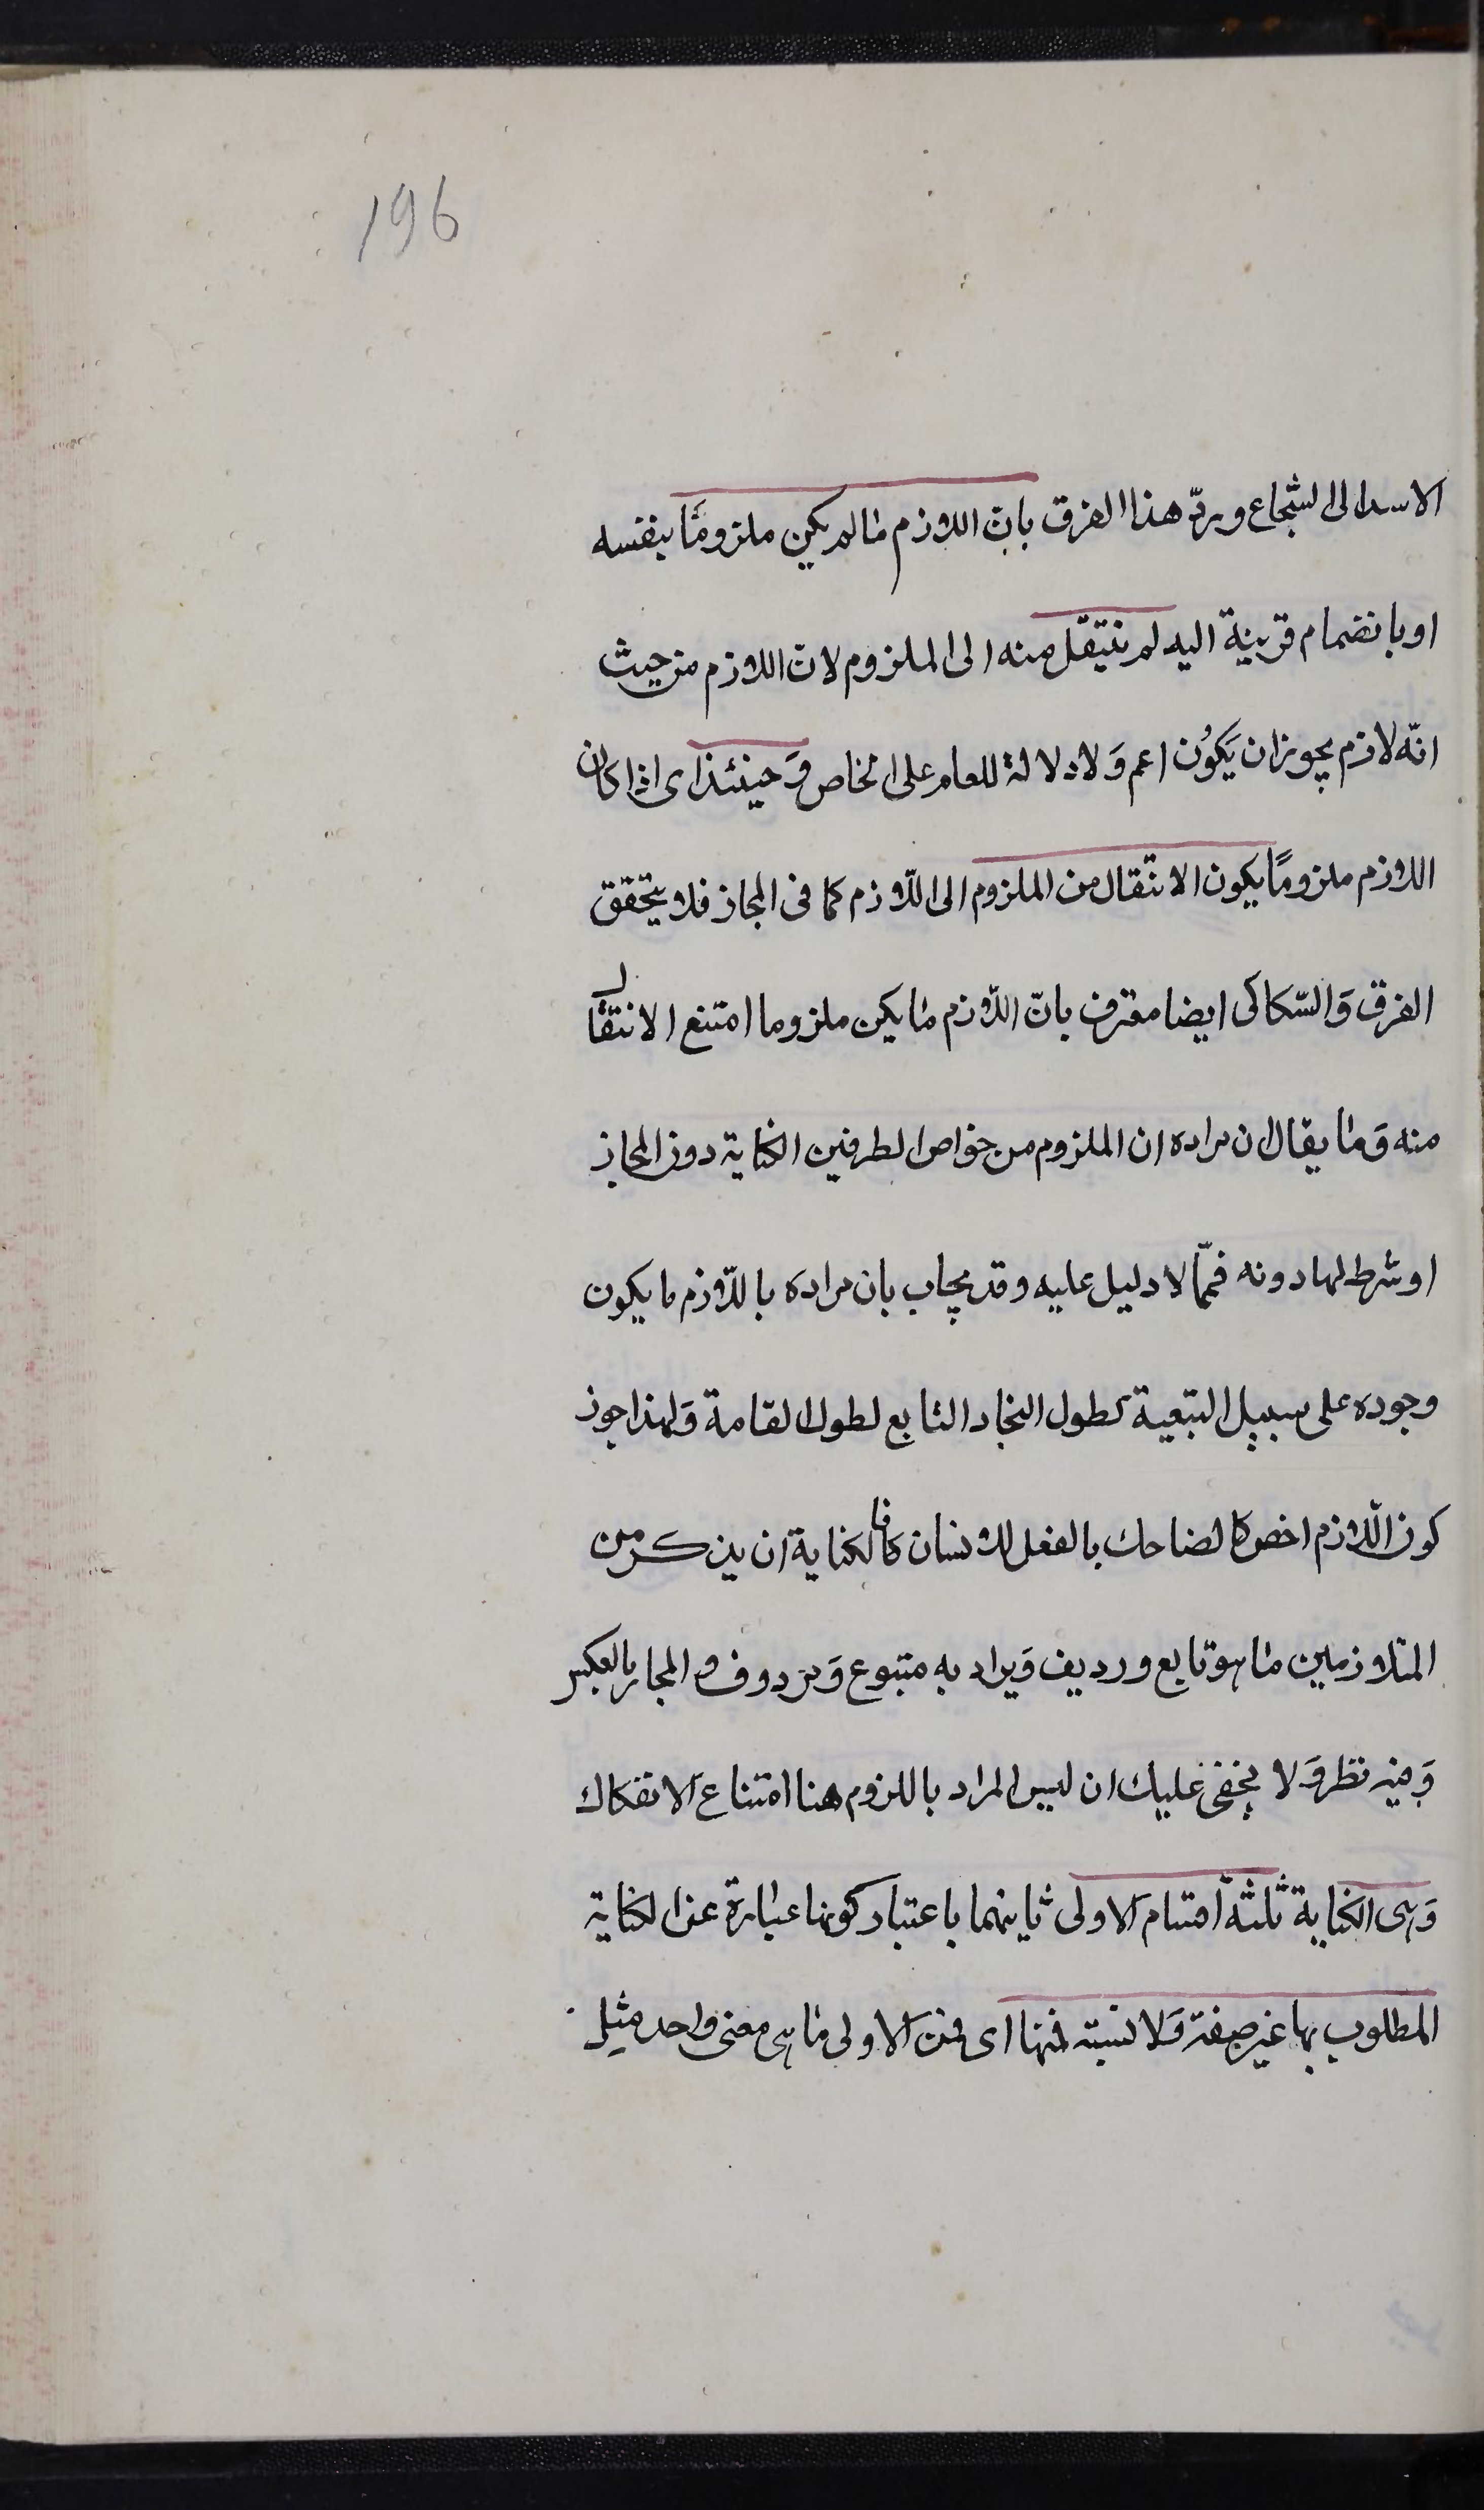 196
الاسد الى الشجاع وردّ هذا الفرق بانّ اللازم ما لم يكن ملزومًا بنفسه
او بانضمام قرينة اليه لم ينتقل منه الى الملزوم لانّ اللازم من حيث
انّه لازم يجوز ان يَكوُن اعم وَلا دلالة للعام على الخاص وَحينئذ اى اذا كان
اللازم ملزومًا يكون الانتقال من الملزوم الى اللّازم كما فى المجاز فلا يتحقق
الفرق وَالسّكاكى ايضا معترف بانّ اللّازم ما يكن ملزوما امتنع الانتقال
منه وَما يقال ان مراده ان الملزوم من خواص الطرفين الكناية دون المجاز
او شرط لها دونه فممّا لا دليل عليه وقد يجاب بان مراده باللّازم ما يكون
وجوده على سبيل التبعية كطول النجاد التابع لطول القامة وَلهذا جوز
كون اللّازم اخص كالضاحك بالفعل للانسان فالكناية ان يذكر من
المتلازمين ما هو تابع ورديف وَيراد به متبوع وَمردوف والمجاز بالعكس
وَفيه نظر وَلا يخفى عليك ان ليس المراد باللزوم هنا امتناع الانفكاك
وَهى الكناية ثلثة اقسام الاولى ثانيهما باعتبار كونها عبارة عن الكناية
المطلوب بها غير صفة وَلا نسبة فمنها اى فمن الاولى ما هى معنى واحد مثل